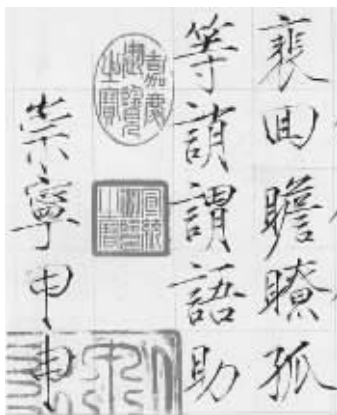 裵回瞻瞭孤
等誚謂語助
嘉慶御覽之寶
宣統御覽之寶
崇寧甲申